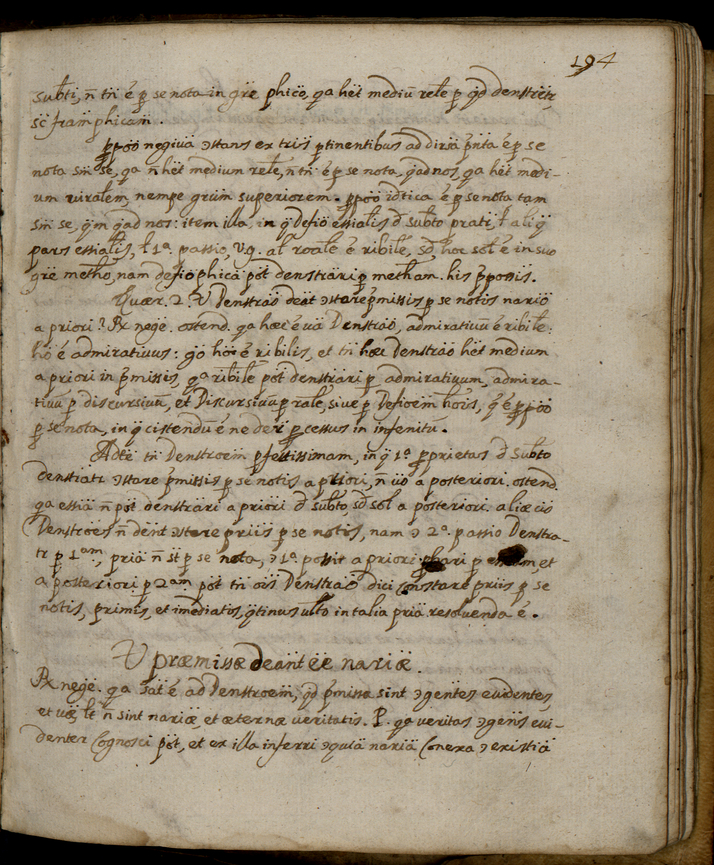 194
subti, n̄ tn̄ é p̱ se nota in grē phico, qa hēt mediū relē p̱ qd denstretr
sc̄ fram phicam̄.
p̱pōō negivā ɔstans ex triis ptinentibus ad dirsā p̄nta é p̱ se
nota sm̄ se, qa n̄ hēt medium relē, n̄ tn̄ é p̱ se nota, qad nos, qa hēt medi-
um viralem, nempe grūm superiorem. p̱pōō idtica é p̱ se nota tam
sm̄ se, qm qad nos: item illa, in q̄ defio essialis d̄ subto prati, ł ali q̄
pars essialis, ł 1a. passio, v.g. al roale é ribilē, sd hoc sol é in suo
grē metho, nam defio phicā pōt denstrāri p̱ metham. his p̱pōssis.
Quær. 2. V Denstrāō deāt ɔstare p̄missis p̱ se notis nariō
a priori? Rx nege. ostend. qa hæc é uā Denstrāō, admirativū é ribile:
hō é admirativus: gō hōē é ribilis, et tn̄ hæc Denstrāō hēt medium
a priori in p̄missis, qa ribile pōt denstrāri p̱ admirativum, admira-
tivū p̱ discursivū, et Discursivū p̱ rale, sive p̱ Defioēm hōis, q̄ é p̱pōō
p̱ se nota, in q̄ cistendū é ne deri p̱cessus in infenitu.
Adtē tn̄ Denstroēm pfectissimam, in q̄ 1a. p̱prietas d̄ subto
denstiatr ɔstare p̄missis p̱ se notis a priori, n̄ uō a posteriori. ostend.
qa essiā n̄ pōt denstrāri a priori d̄ subto, sd sol a posteriori. aliæ cio
Denstroēs n̄ dēnt ɔstare priis p̱ se notis, nam ɔ 2a. passio Denstra-
tr p̱ 1am, priā n̄ st p̱ se nota, ɔ 1a. possit a priori et
a posteriori p̱ 2am. pōt tn̄ ois Denstrāō dici constare priis p̱ se
notis, primis, et imediatis, qtinus ulto in talia priā resoluenda é.
V præmissæ deānt eē nariæ.
Rx nege. qa sat é ad Denstroēm, qd p̄missa sint ɔgentes evidentes,
et uæ lt n̄ sint nariæ, et æternæ veritatis. P. qa veritas ɔgens evi-
denter Cognosci pōt, et ex illa inferri ɔquiā nariā Conexa ɔ existiā